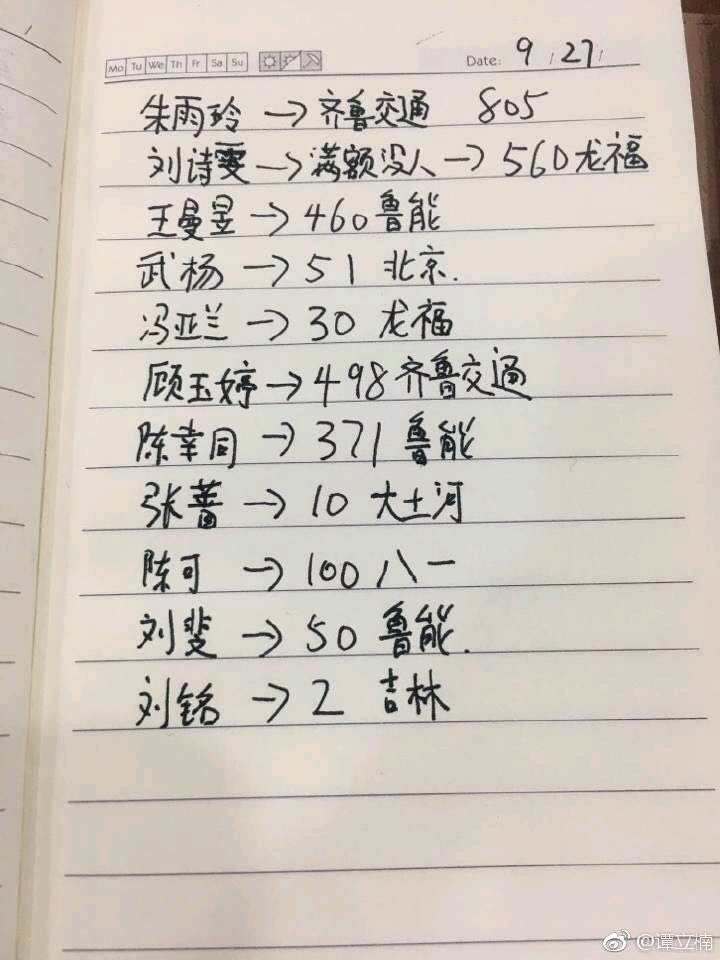 Mo Tu We Th Fr Sa Su Date: 9 / 27 /
朱雨玲 → 齐鲁交通 805
刘诗雯 → 满额没人 → 560龙福
王曼昱 → 460鲁能
武杨 → 51 北京.
冯亚兰 → 30 龙福
顾玉婷 → 498齐鲁交通
陈幸同 → 371 鲁能
张蔷 → 10 大土河
陈可 → 100 八一
刘斐 → 50 鲁能.
刘铭 → 2 吉林
@谭立楠